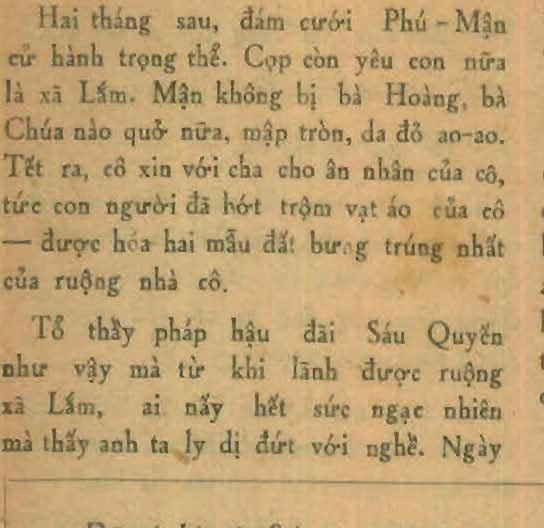 Hai tháng sau, đám cưới Phú - Mận
cử hành trọng thể. Cọp còn yêu con nữa
là xã Lắm. Mận không bị bà Hoàng, bà
Chúa nào quở nữa, mập tròn, da đỏ ao-ao.
Tết ra, cô xin với cha cho ân nhân của cô,
tức con người đã hớt trộm vạt áo của cô
— được hóa hai mẫu đất bưng trúng nhất
của ruộng nhà cô.
Tổ thầy pháp hậu đãi Sáu Quyền
như vậy mà từ khi lãnh được ruộng
xã Lắm, ai nấy hết sức ngạc nhiên
mà thấy anh ta ly dị đứt với nghề. Ngày